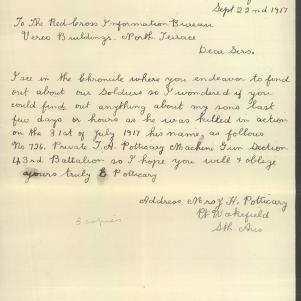 Sept 22nd 1917
To The Red Cross Information Bureau
Verco Buildings. North Terrace
Dear Sirs.
I see in the Chronicle where you endeavor to find
out about our Soldiers so I wondered if you
could find out anything about my sons last
few days or hours as he was killed in action
on the 31st of July 1917 his name as follows
No 726. Private T. A. Potticary Machine Gun Section
43rd Battalion so I hope you will & oblige
yours truly E Potticary
Address Mrs H. Potticary
Pt Wakefield
Sth Aus
3 copies